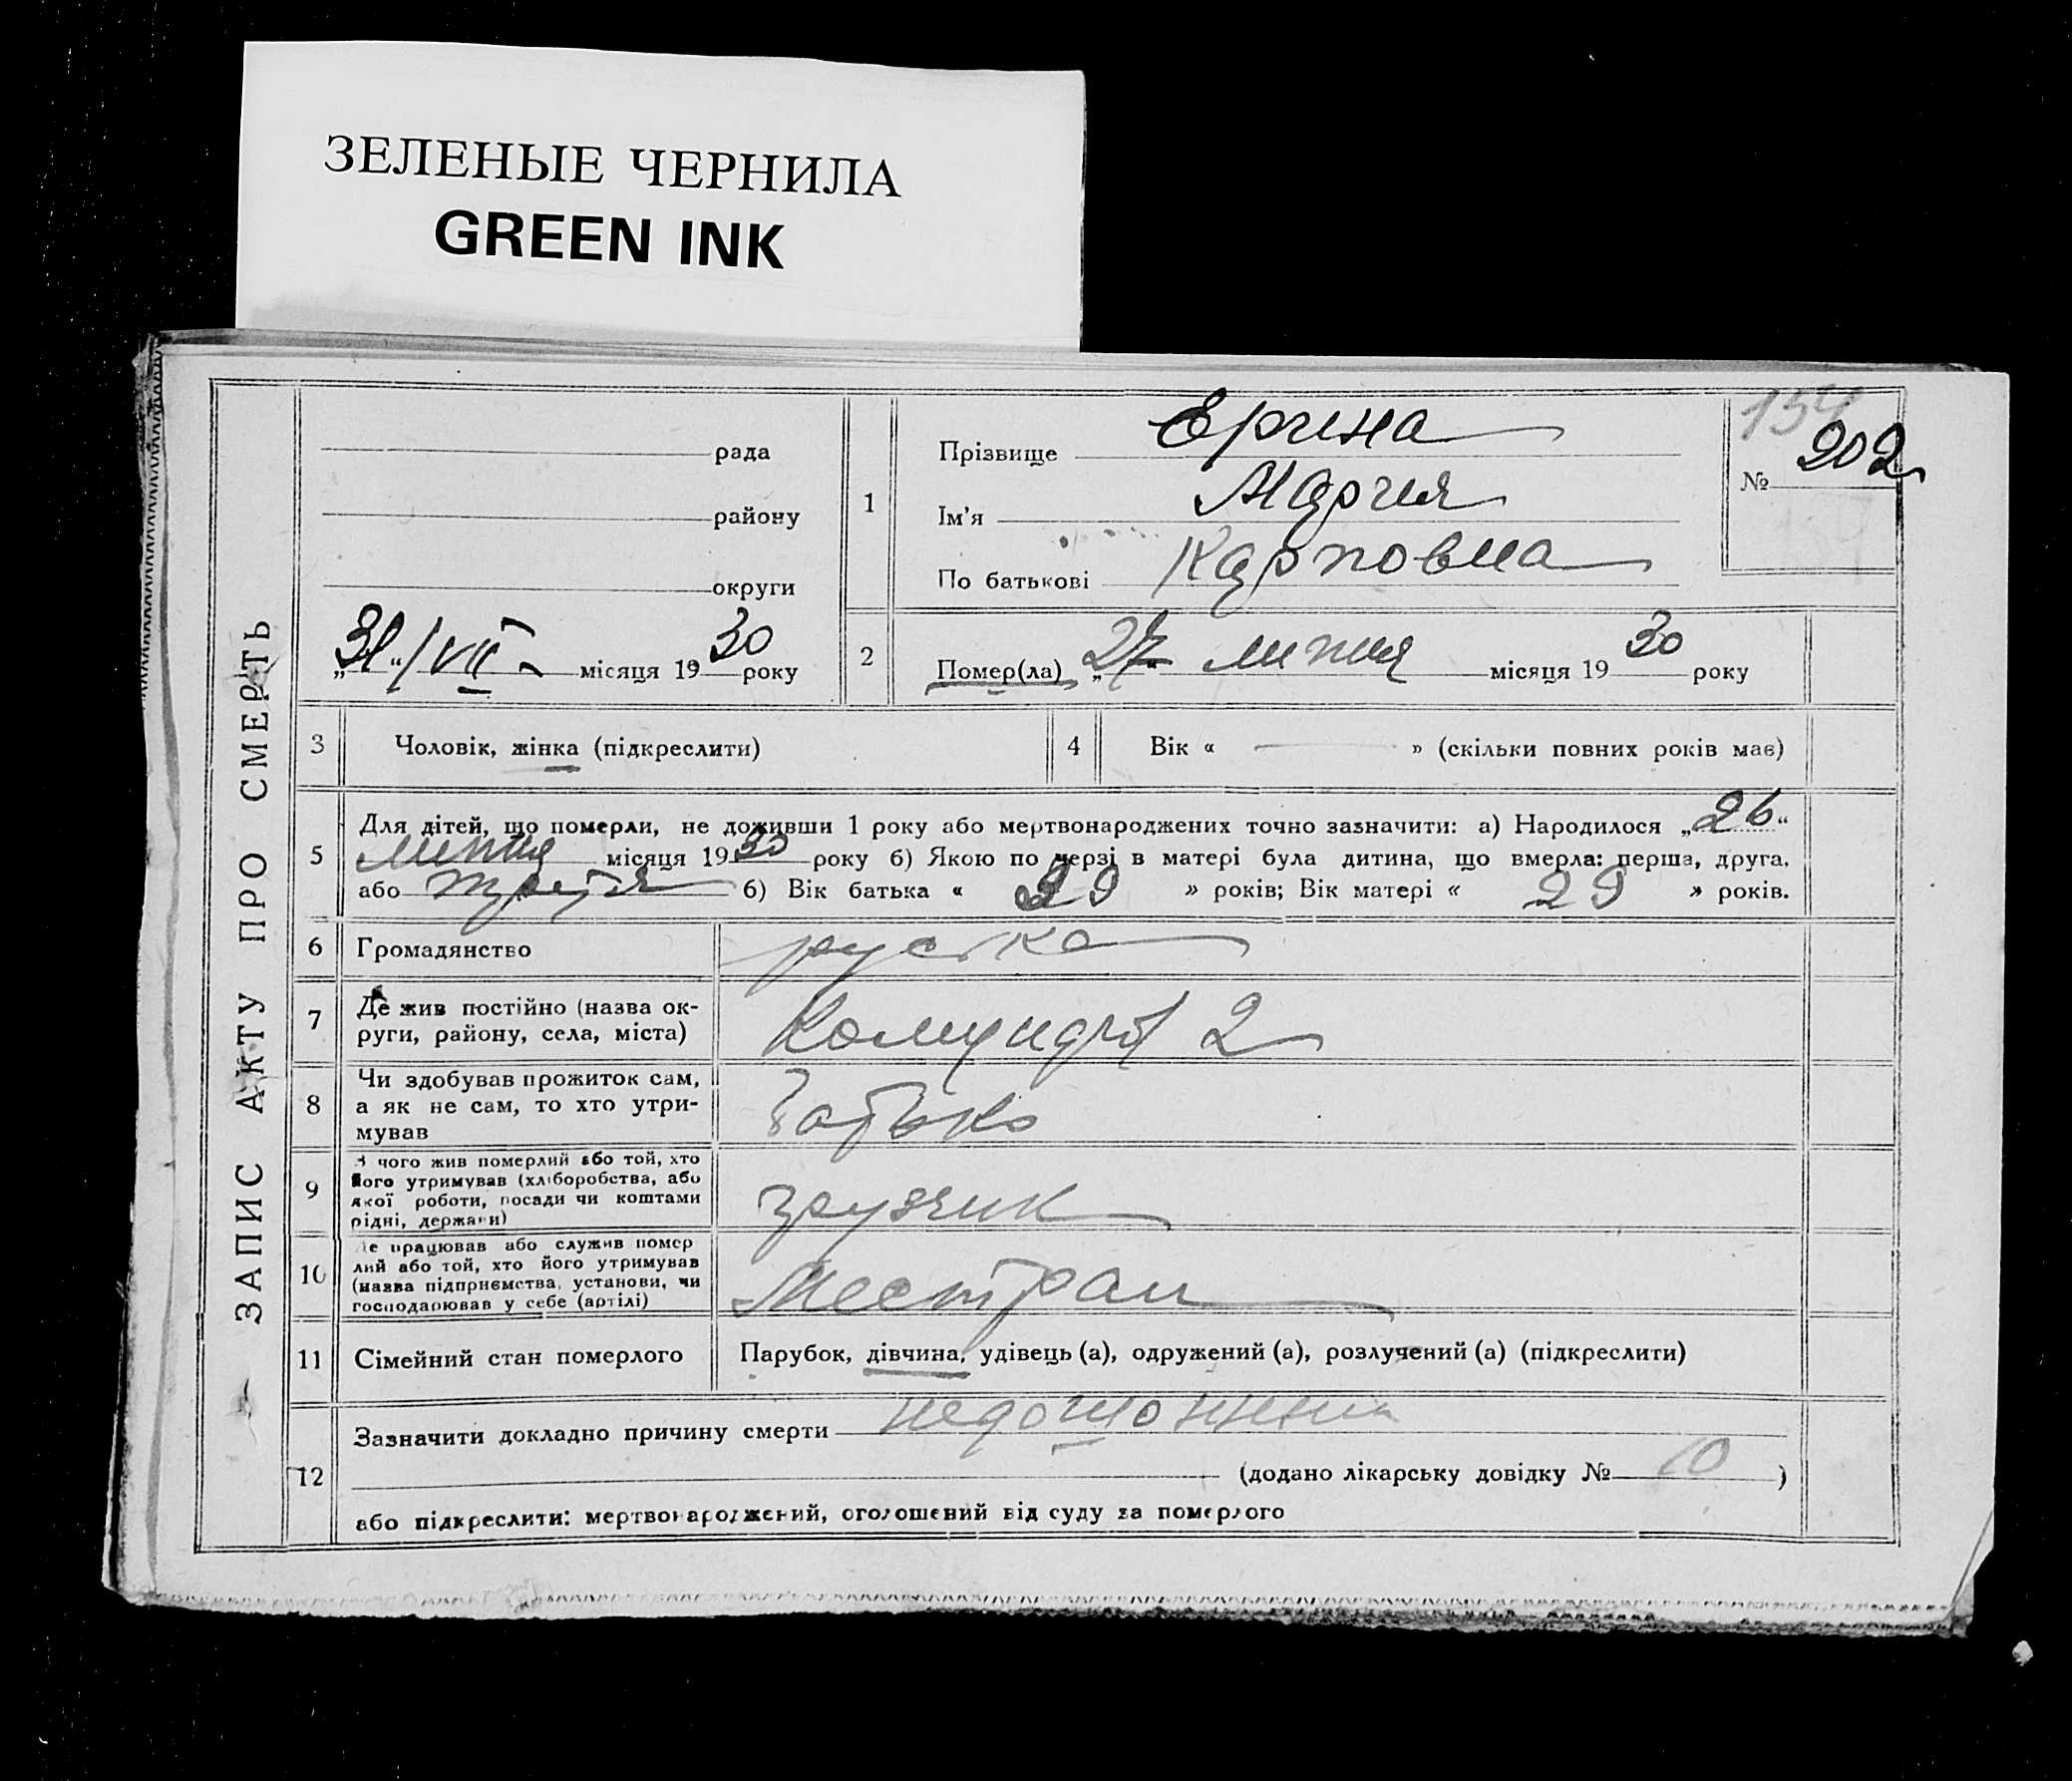 ЗЕЛЕНЫЕ ЧЕРНИЛА
GREEN INK
ЗАПИС АКТУ ПРО СМЕРТЬ
рада
району
округи
„31“/VII місяця 1930 року
1
Прізвище Ерина
Ім'я Мария
По батькові Карповна
154
№ 202
2
Помер(ла) „27“ липня місяця 1930 року
3 Чоловік, жінка (підкреслити)
4 Вік « — » (скільки повних років має)
5 Для дітей, що померли, не доживши 1 року або мертвонароджених точно зазначити: а) Народилося „26“
липня місяця 1930 року б) Якою по черзі в матері була дитина, що вмерла: перша, друга,
або третя б) Вік батька « 29 » років; Вік матері « 29 » років.
6 Громадянство руска
7 Де жив постійно (назва ок-
руги, району, села, міста)
2
8 Чи здобував прожиток сам,
а як не сам, то хто утри-
мував
батько
9 З чого жив померлий або той, хто
його утримував (хліборобства, або
якої роботи, посади чи коштами
рідні, держави)
грузчик
10 Де працював або служив помер
лий або той, хто його утримував
(назва підприємства, установи, чи
господарював у себе (артілі)
Местран
11 Сімейний стан померлого
Парубок, дівчина, удівець (а), одружений (а), розлучений (а) (підкреслити)
12
Зазначити докладно причину смерти
(додано лікарську довідку № 10 )
або підкреслити: мертвонароджений, оголошений від суду за померлого